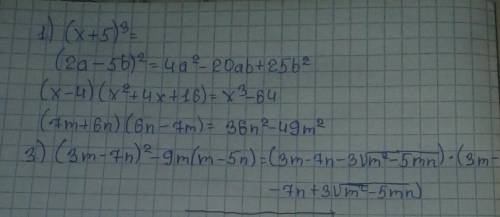 1) (x+5)³=
(2a-5b)²=4a²-20ab+25b²
(x-4)(x²+4x+16)=x³-64
(7m+6n)(6n-7m)=36n²-49m²
3) (3m-7n)²-9m(m-5n)=(3m-7n-3√m²-5mn)·(3m-
-7n+3√m²-5mn)